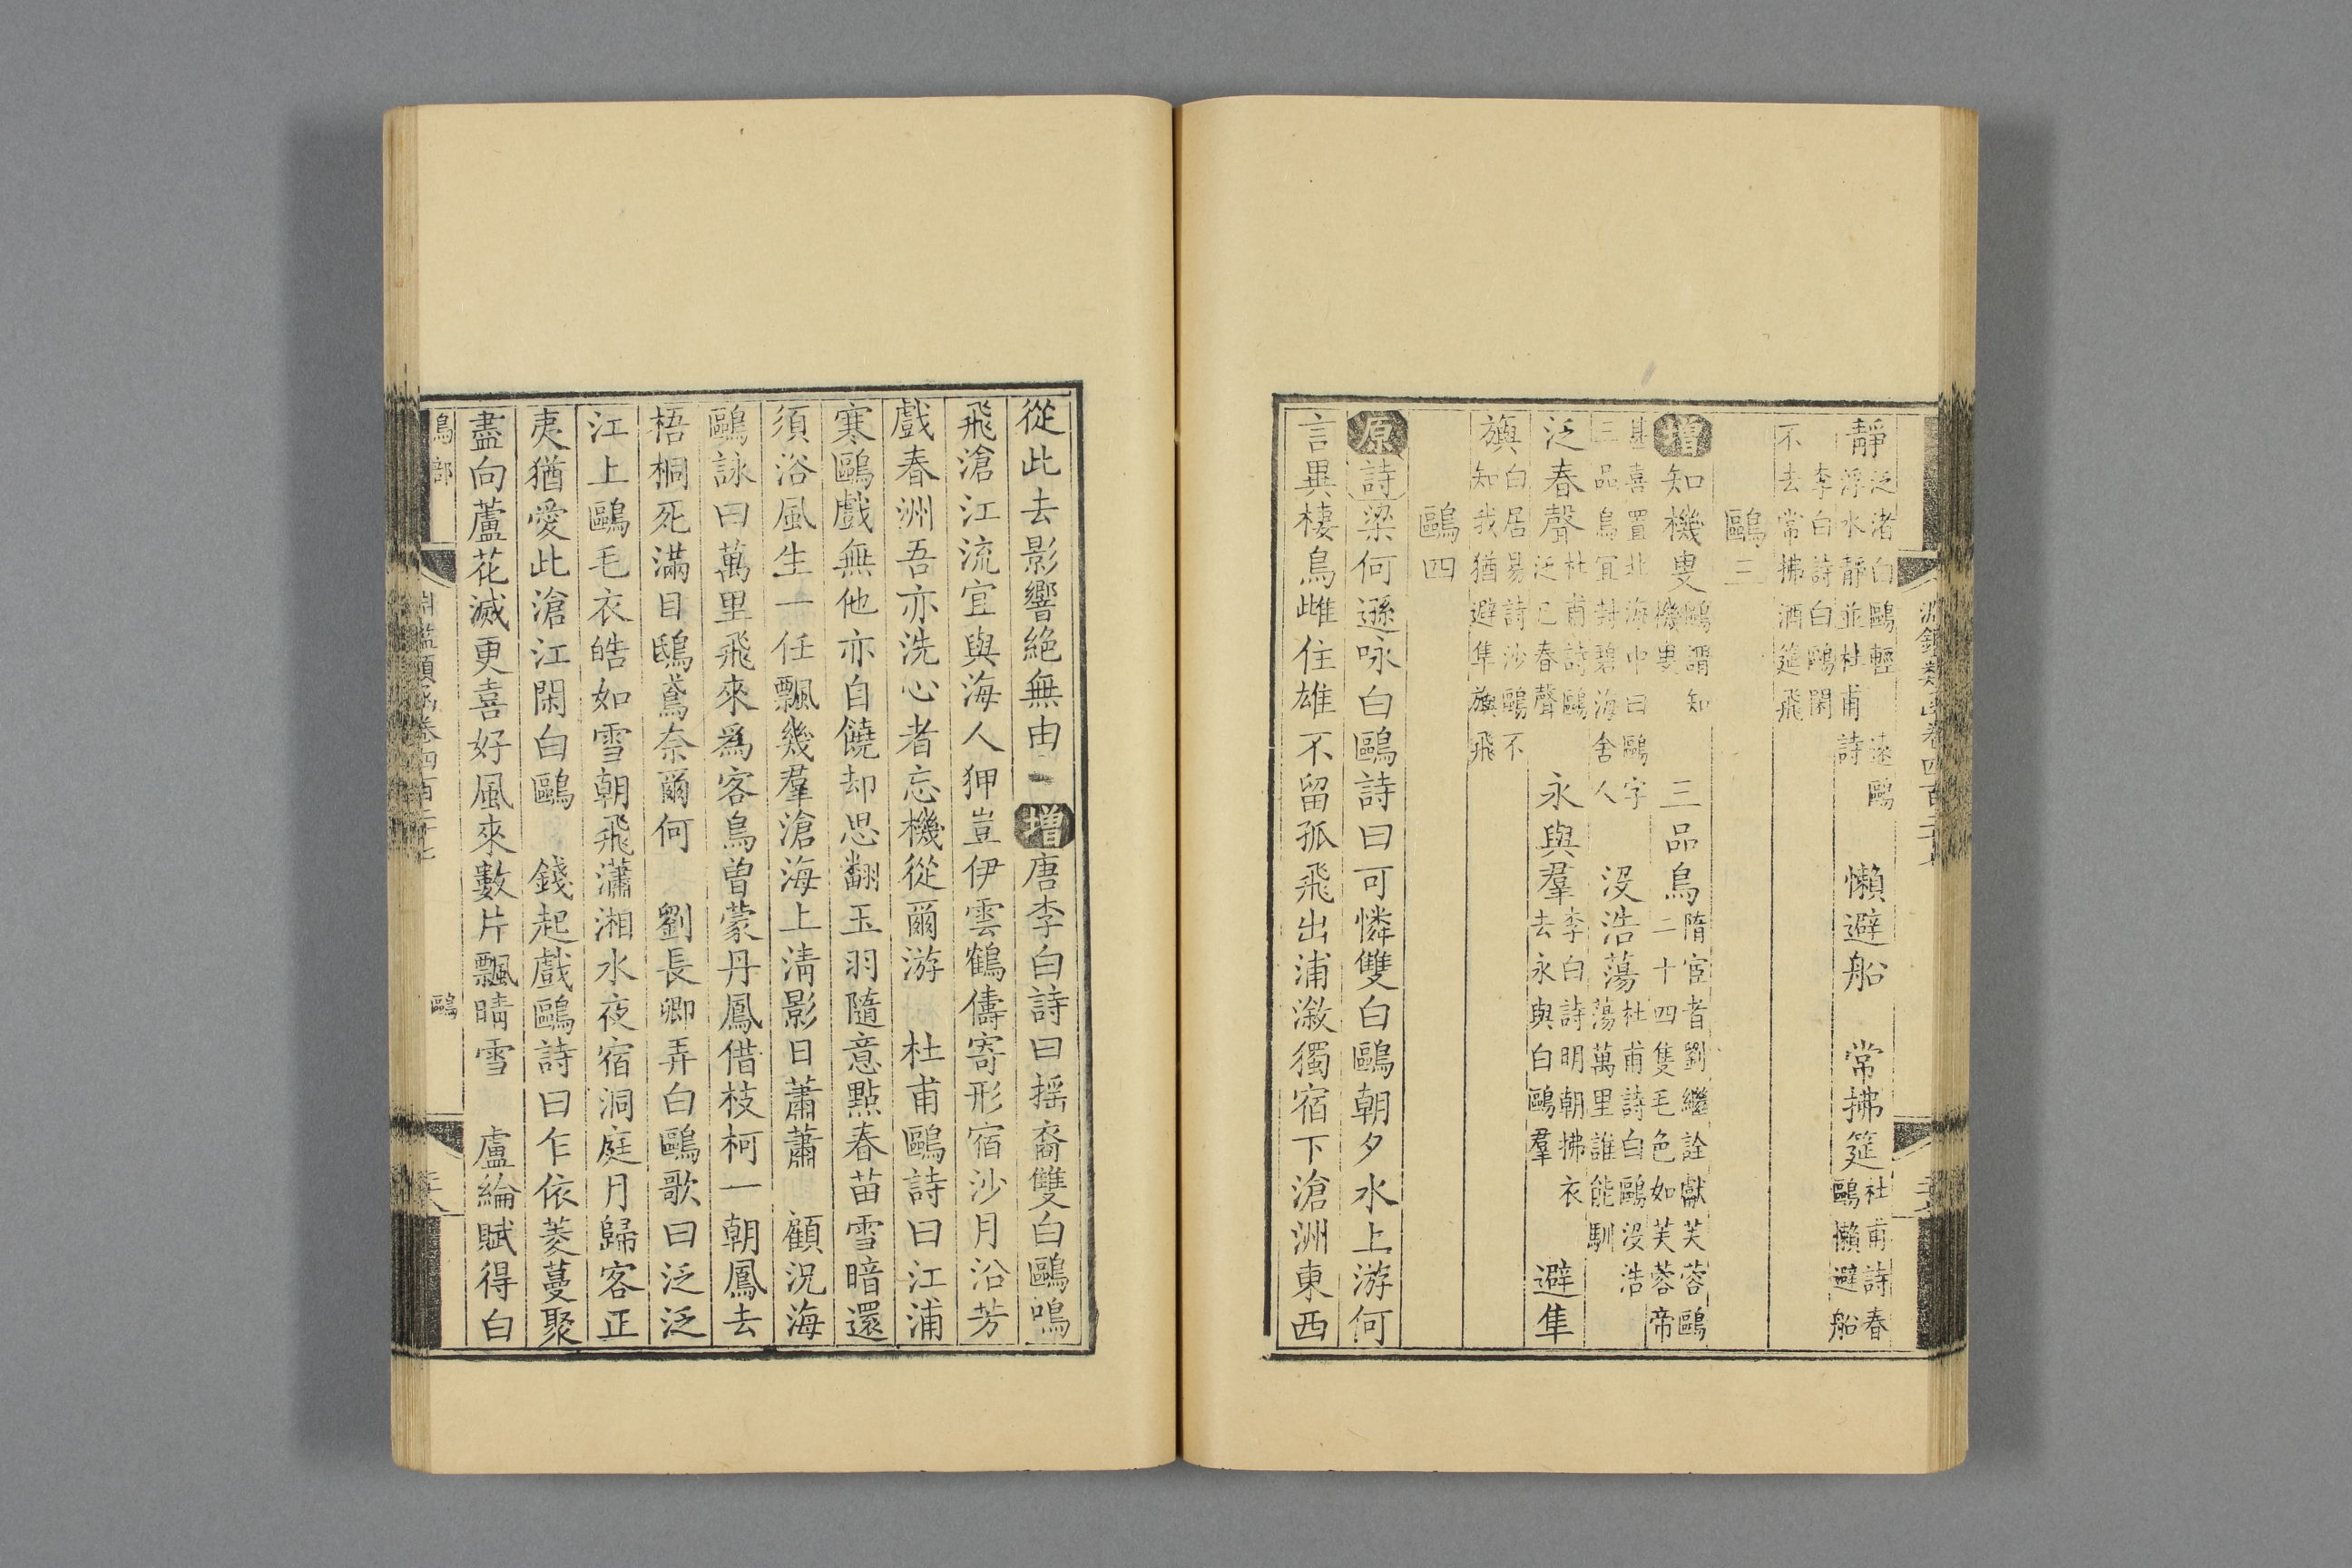 靜泛渚白鷗輕 遠鷗浮水靜並杜甫詩 懶避船 常拂筵杜甫詩春鷗懶避船
李白詩白鷗閑不去常拂酒筵飛
鷗三
增知機叟鷗謂知機叟 三品鳥隋宦者劉繼詮獻芙蓉鷗二十四隻毛色如芙蓉帝
甚喜置北海中曰鷗字三品鳥宜封碧海舍人 沒浩蕩杜甫詩白鷗沒浩蕩萬里誰能馴
泛春聲杜甫詩鷗泛已春聲 永與羣李白詩明朝拂衣去永與白鷗羣 避隼
旟白居易詩沙鷗不知我猶避隼旟飛
鷗四
原詩梁何遜咏白鷗詩曰可憐雙白鷗朝夕水上游何
言異棲鳥雌住雄不留孤飛出浦漵獨宿下滄洲東西
淵鑑類函卷四百二十七
從此去影響絕無由 增唐李白詩曰搖裔雙白鷗鳴
飛滄江流宜與海人狎豈伊雲鶴儔寄形宿沙月沿芳
戲春洲吾亦洗心者忘機從爾游 杜甫鷗詩曰江浦
寒鷗戲無他亦自饒却思翻玉羽隨意點春苗雪暗還
須浴風生一任飄幾羣滄海上清影日蕭蕭 顧況海
鷗詠曰萬里飛來爲客鳥曾蒙丹鳳借枝柯一朝鳳去
梧桐死滿目鴟鳶奈爾何 劉長卿弄白鷗歌曰泛泛
江上鷗毛衣皓如雪朝飛瀟湘水夜宿洞庭月歸客正
夷猶愛此滄江閑白鷗 錢起戲鷗詩曰乍依菱蔓聚
盡向蘆花滅更喜好風來數片飄晴雪 盧綸賦得白
鳥部 鷗
淵鑑類函卷四百二十七